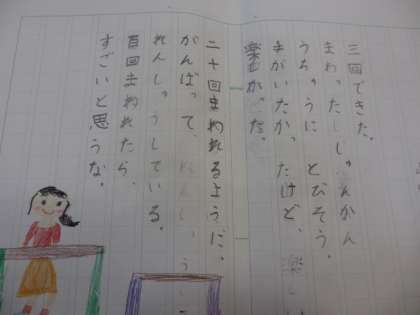 三回できた。
まわったしゅんかん
うちゅうにとびそう。
まがいたかったけど、楽し
楽しかった。
二十回まわれるように、
がんばって、れんしゅう
れんしゅうしている。
百回まわれたら、
すごいと思うな。